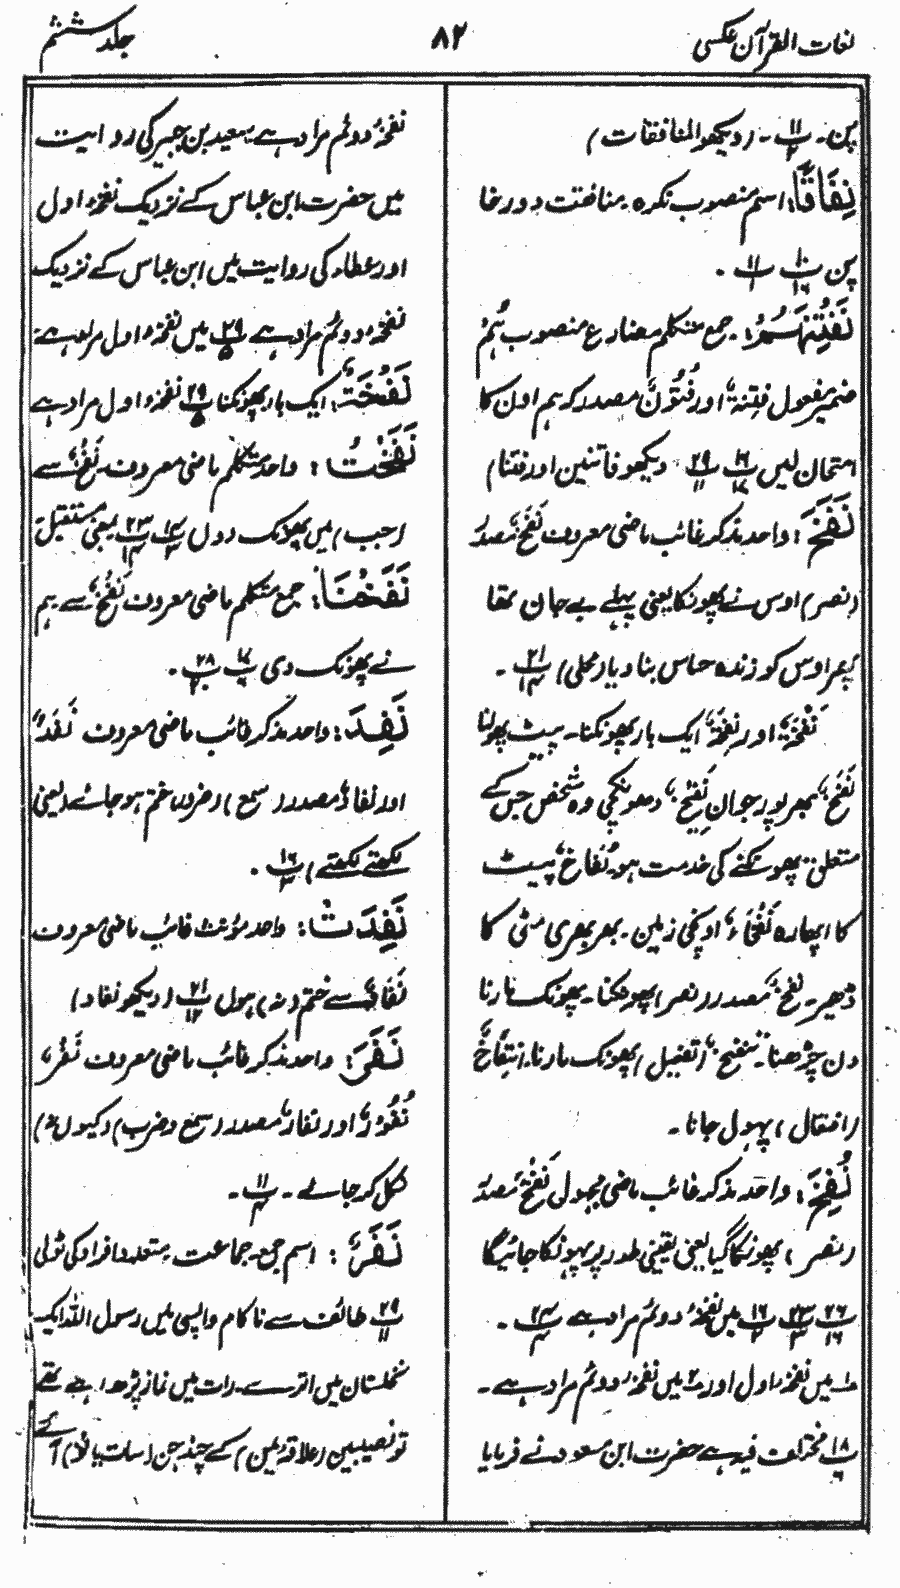 لغات القرآن عکسی
۸۲
جلد ششم
پن۔ ۱۱/۲ پ۔ (دیکھو المنافقات)
نِفَاقًا: اسم منصوب نکرہ۔ منافقت دورخا
پن ۱۰/۱۶ پ ۱۱/۱ پ۔
لِنَفْتِنَهُمْ: جمع متکلم مضارع منصوب ہُمْ
ضمیر مفعول فِتْنَۃٌ اور فُتُونٌ مصدر کہ ہم اون کا
امتحان لیں ۱۶/۱۷ پ ۲۹/۱۱ پ دیکھو فاتنین اور فتنا)
نَفَخَ: واحد مذکر غائب ماضی معروف نَفْخٌ مصدر
(نصر) اوس نے پھونکا یعنی پہلے بے جان تھا
پھر اوس کو زندہ حساس بنا دیا (محلی) ۲۱/۱۴ پ۔
نَفْخَۃٌ اور نِفْخَۃٌ ایک بار پھونکنا۔ پیٹ پھولنا
نَفْخٌ بھرپور جوان نَفِیْخٌ۔ دھونکچی وہ شخص جس کے
متعلق پھونکنے کی خدمت ہو نُفَّاخٌ پیٹ
کا ابھارہ نَفْخَاءُ اونچی زمین۔ بھربھری مٹی کا
ڈھیر۔ نَفْخٌ مصدر (نصر) پھونکنا۔ پھونک مارنا
دن چڑھنا۔ تَنْفِیْخٌ (تفعیل) پھونک مارنا۔ انتِفَاخٌ
(افتعال) پھول جانا۔
نُفِخَ: واحد مذکر غائب ماضی مجہول نَفْخٌ مصدر
(نصر) پھونکا گیا یعنی یقینی طور پر پھونکا جائیگا
۲۶/۱۶ پ ۲۳/۳ پ ۱۶/۲ پ میں نَفْخَہ دوئم مراد ہے ۲۴/۴ پ۔
۱ میں نفخہ اول اور ۲ میں نفخہ دوئم مراد ہے۔
۱۸/۶ پ مختلف فیہ ہے حضرت ابن مسعود نے فرمایا
نفخہ دوئم مراد ہے سعید بن جبیر کی روایت
میں حضرت ابن عباس کے نزدیک نفخہ اول
اور عطاء کی روایت میں ابن عباس کے نزدیک
نفخہ دوئم مراد ہے ۲۹/۵ پ میں نفخہ اول مراد ہے۔
نَفْخَۃٌ: ایک بار پھونکنا ۲۹/۵ پ نفخہ اول مراد ہے
نَفَخْتُ: واحد متکلم ماضی معروف۔ نَفْخٌ سے
(جب) میں پھونک دوں ۱۴/۳ پ ۲۳/۱۴ پ یعنی مستقبل۔
نَفَخْنَا: جمع متکلم ماضی معروف نَفْخٌ سے ہم
نے پھونک دی ۱۷/۶ پ ۲۸/۲۰ پ۔
نَفِدَ: واحد مذکر غائب ماضی معروف نَفَدٌ
اور نَفَادٌ مصدر (سمع) (فرض) ختم ہو جائے (یعنی
لکھتے لکھتے) ۱۶/۳ پ۔
نَفِدَتْ: واحد مؤنث غائب ماضی معروف
نَفَادٌ سے ختم (نہ) ہوں ۲۱/۱۲ پ (دیکھو نفاد)
نَفَرَ: واحد مذکر غائب ماضی معروف نَفْرٌ،
نُفُوْرٌ اور نِفَارٌ مصدر (سمع و ضرب) (کیوں نہ)
نکل کر جائے۔ ۱۱/۴ پ۔
نَفَرٌ: اسم جمع۔ جماعت متعدد افراد کی ٹولی
۲۹/۱۱ پ طائف سے ناکام واپسی میں رسول اللہ ایک
نخلستان میں اترے۔ رات میں نماز پڑھ رہے تھے
تو نصیبین (علاقہ یمن) کے چند جن (سات یا نو) آئے